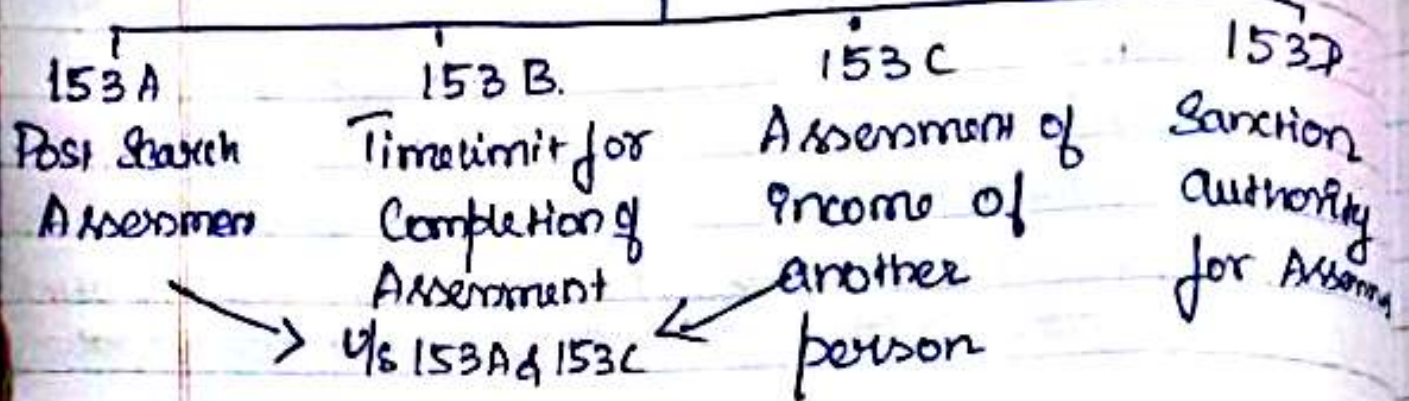 153A
Post Search
Assessmen
153 B.
Timelimit for
Completion of
Assessment
U/s 153A & 153C
153 C
Assessment of
income of
another
person
153D
Sanction
authority
for